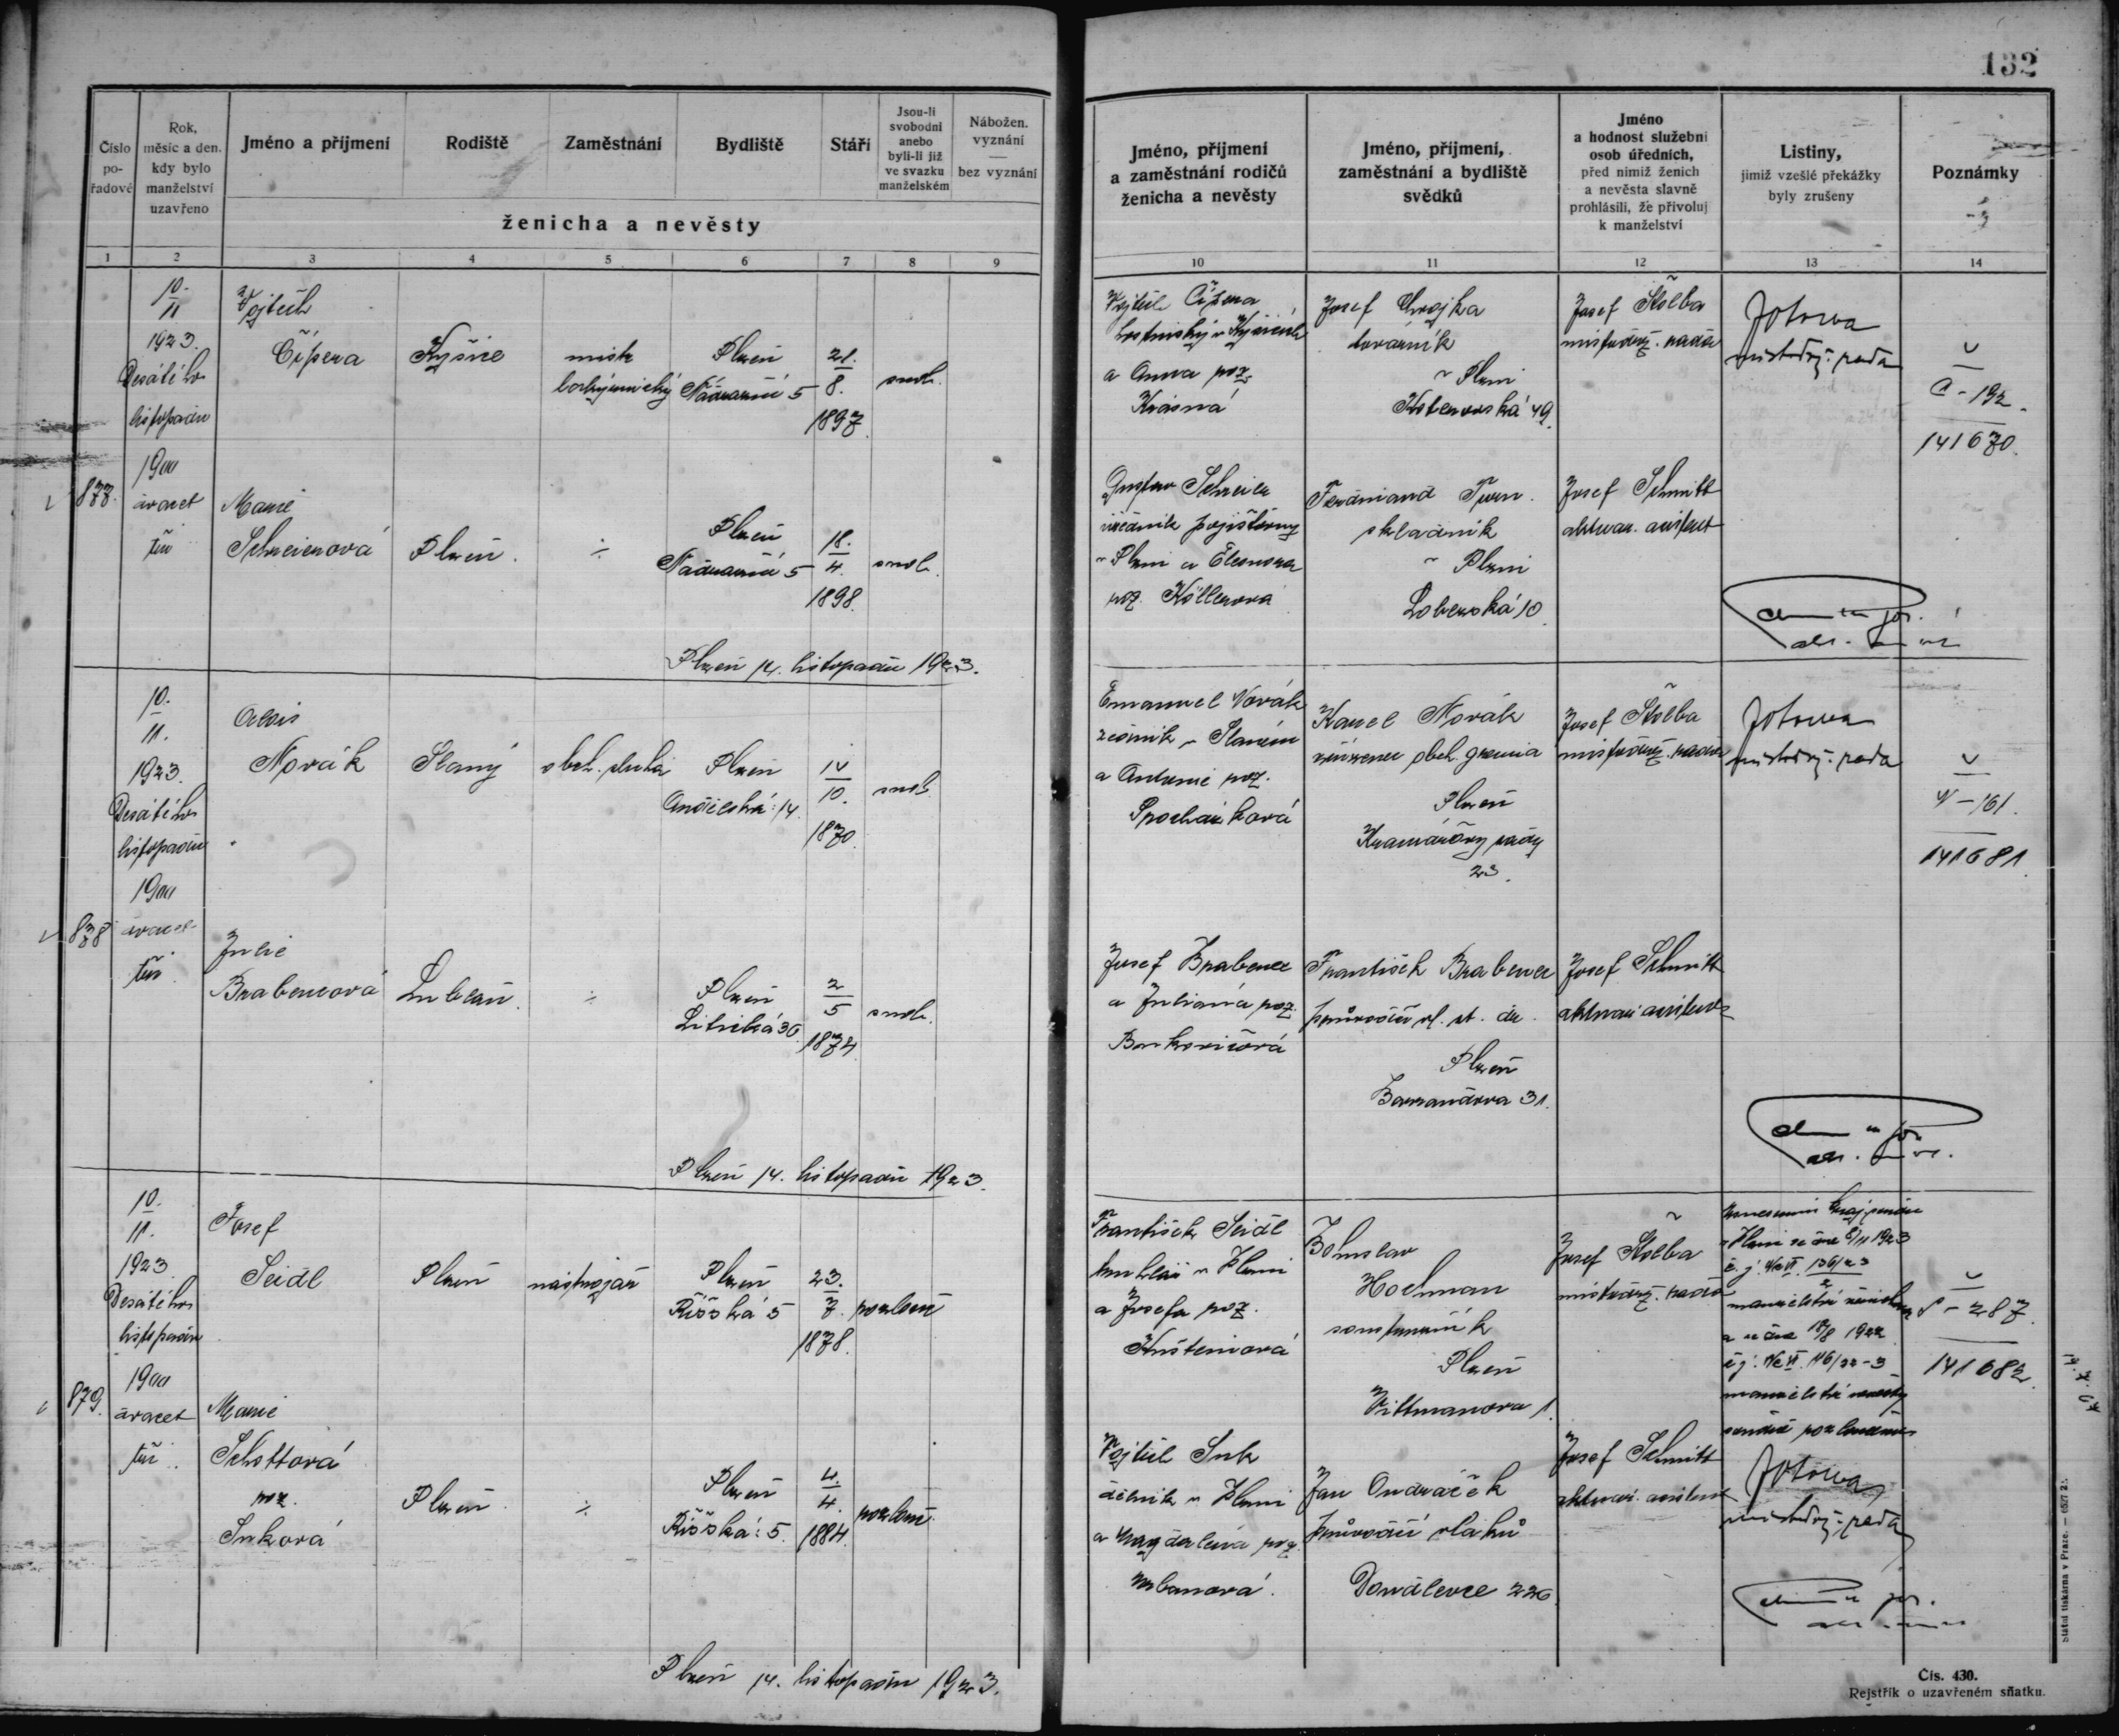 132
Číslo
po-
řadové
Rok,
měsíc a den.
kdy bylo
manželství
uzavřeno
Jméno a příjmení
Rodiště
Zaměstnání
Bydliště
Stáří
Jsou-li
svobodni
anebo
byli-li již
ve svazku
manželském
Nábožen.
vyznání
—
bez vyznání
ženicha a nevěsty
1 2 3 4 5 6 7 8 9
Jméno, příjmení
a zaměstnání rodičů
ženicha a nevěsty
Jméno, příjmení,
zaměstnání a bydliště
svědků
Jméno
a hodnost služební
osob úředních,
před nimiž ženich
a nevěsta slavně
prohlásili, že přivolují
k manželství
Listiny,
jimiž vzešlé překážky
byly zrušeny
Poznámky
10 11 12 13 14
877.
10.
11
1923.
Desátého
listopadu
1900
dvacet
tři
Vojtěch
Čipera
Kyšice
mistr
Plzeň
Nádražní 5
21.
8.
1897.
svob.
Marie
Schreierová
Plzeň.
÷
Plzeň
Nádražní 5
18.
4.
1898.
svob.
Plzeň 14. listopadu 1923.
Vojtěch Čipera
hostinský v Kyšicích
a Anna roz.
Krásná
Josef
továrník
v Plzni
Koterovská 49.
Josef Štolba
místodrž. rada
místodrž. rada
Č-192.
141670.
Gustav Schreier
úředník pojišťovny
v Plzni a Eleonora
roz. Köllerová
Ferdinand Turn.
skladník
v Plzni
Lobezská 10.
Josef Schmitt
aktuar. asistent
878
10.
11.
1923.
Desátého
listopadu
1900
dvacet
tři
Alois
Novák
Slaný
obch. sluha
Plzeň
Andělská: 14.
10.
1870.
svob.
Julie
Brabencová
Lublaň.
÷
Plzeň
Litická 36
2
5
1874.
svob.
Plzeň 14. listopadu 1923.
Emanuel Novák
zedník v Slaném
a Antonie roz.
Karel Novák
zřízenec obch. gremia
Plzeň
Kramářovy sady
23.
Josef Štolba
místodrž. rada
místodrž. rada
N-161.
141681.
Josef Brabenec
a Juliana roz.
František Brabenec
průvodčí vl. st. dr.
Plzeň
Barrandova 31.
Josef Schmitt
aktuar. asistent
879.
10.
11.
1923
Desátého
listopadu
1900
dvacet
tři.
Josef
Seidl
Plzeň
nástrojař
Plzeň
Říšská 5
23.
7.
1878.
rozloučen
Marie
Schottová
roz.
Suková
Plzeň.
÷
Plzeň
Říšská: 5.
4.
4.
1884.
rozlouč.
Plzeň 14. listopadu 1923.
František Seidl
truhlář v Plzni
a Josefa roz.
Bohuslav
Hochman
soustružník
Plzeň
Vittmanova 1.
Josef Štolba
místodrž. rada
Usnesením kraj. soudu
v Plzni ze dne 6/11 1923
manželství ženicha
a ze dne 1922
manželství nevěsty
soudně rozloučeno
místodrž. rada
S-287.
141682.
Vojtěch Suk
dělník v Plzni
a Magdalena roz.
Urbanová.
Jan Ondráček
průvodčí vlaků
Doudlevce 226
Josef Schmitt
aktuar. asistent
Státní tiskárna v Praze.
Čís. 430.
Rejstřík o uzavřeném sňatku.